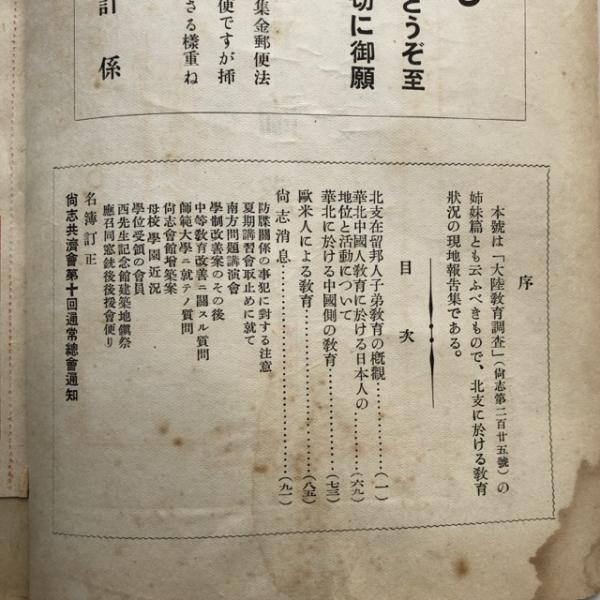 どうぞ至
切に御願
集金郵便法
便ですが挿
さる樣重ね
計係
序
本號は「大陸敎育調査」(尙志第二百廿五號)の
姉妹篇とも云ふべきもので、北支に於ける敎育
狀況の現地報告集である。
目次
北支在留邦人子弟敎育の槪觀………(一)
華北中國人敎育に於ける日本人の
地位と活動について………(六九)
華北に於ける中國側の敎育………(七三)
歐米人による敎育………(八五)
尙志消息………(九一)
防諜關係の事犯に對する注意
夏期講習會取止めに就て
南方問題講演會
學制改善案のその後
中等敎育改善ニ關スル質問
師範大學ニ就テノ質問
尙志會館增築案
母校學園近況
學位受領の會員
西先生記念館建築地鎭祭
應召同窓銃後後援會便り
名簿訂正
尙志共濟會第十回通常總會通知